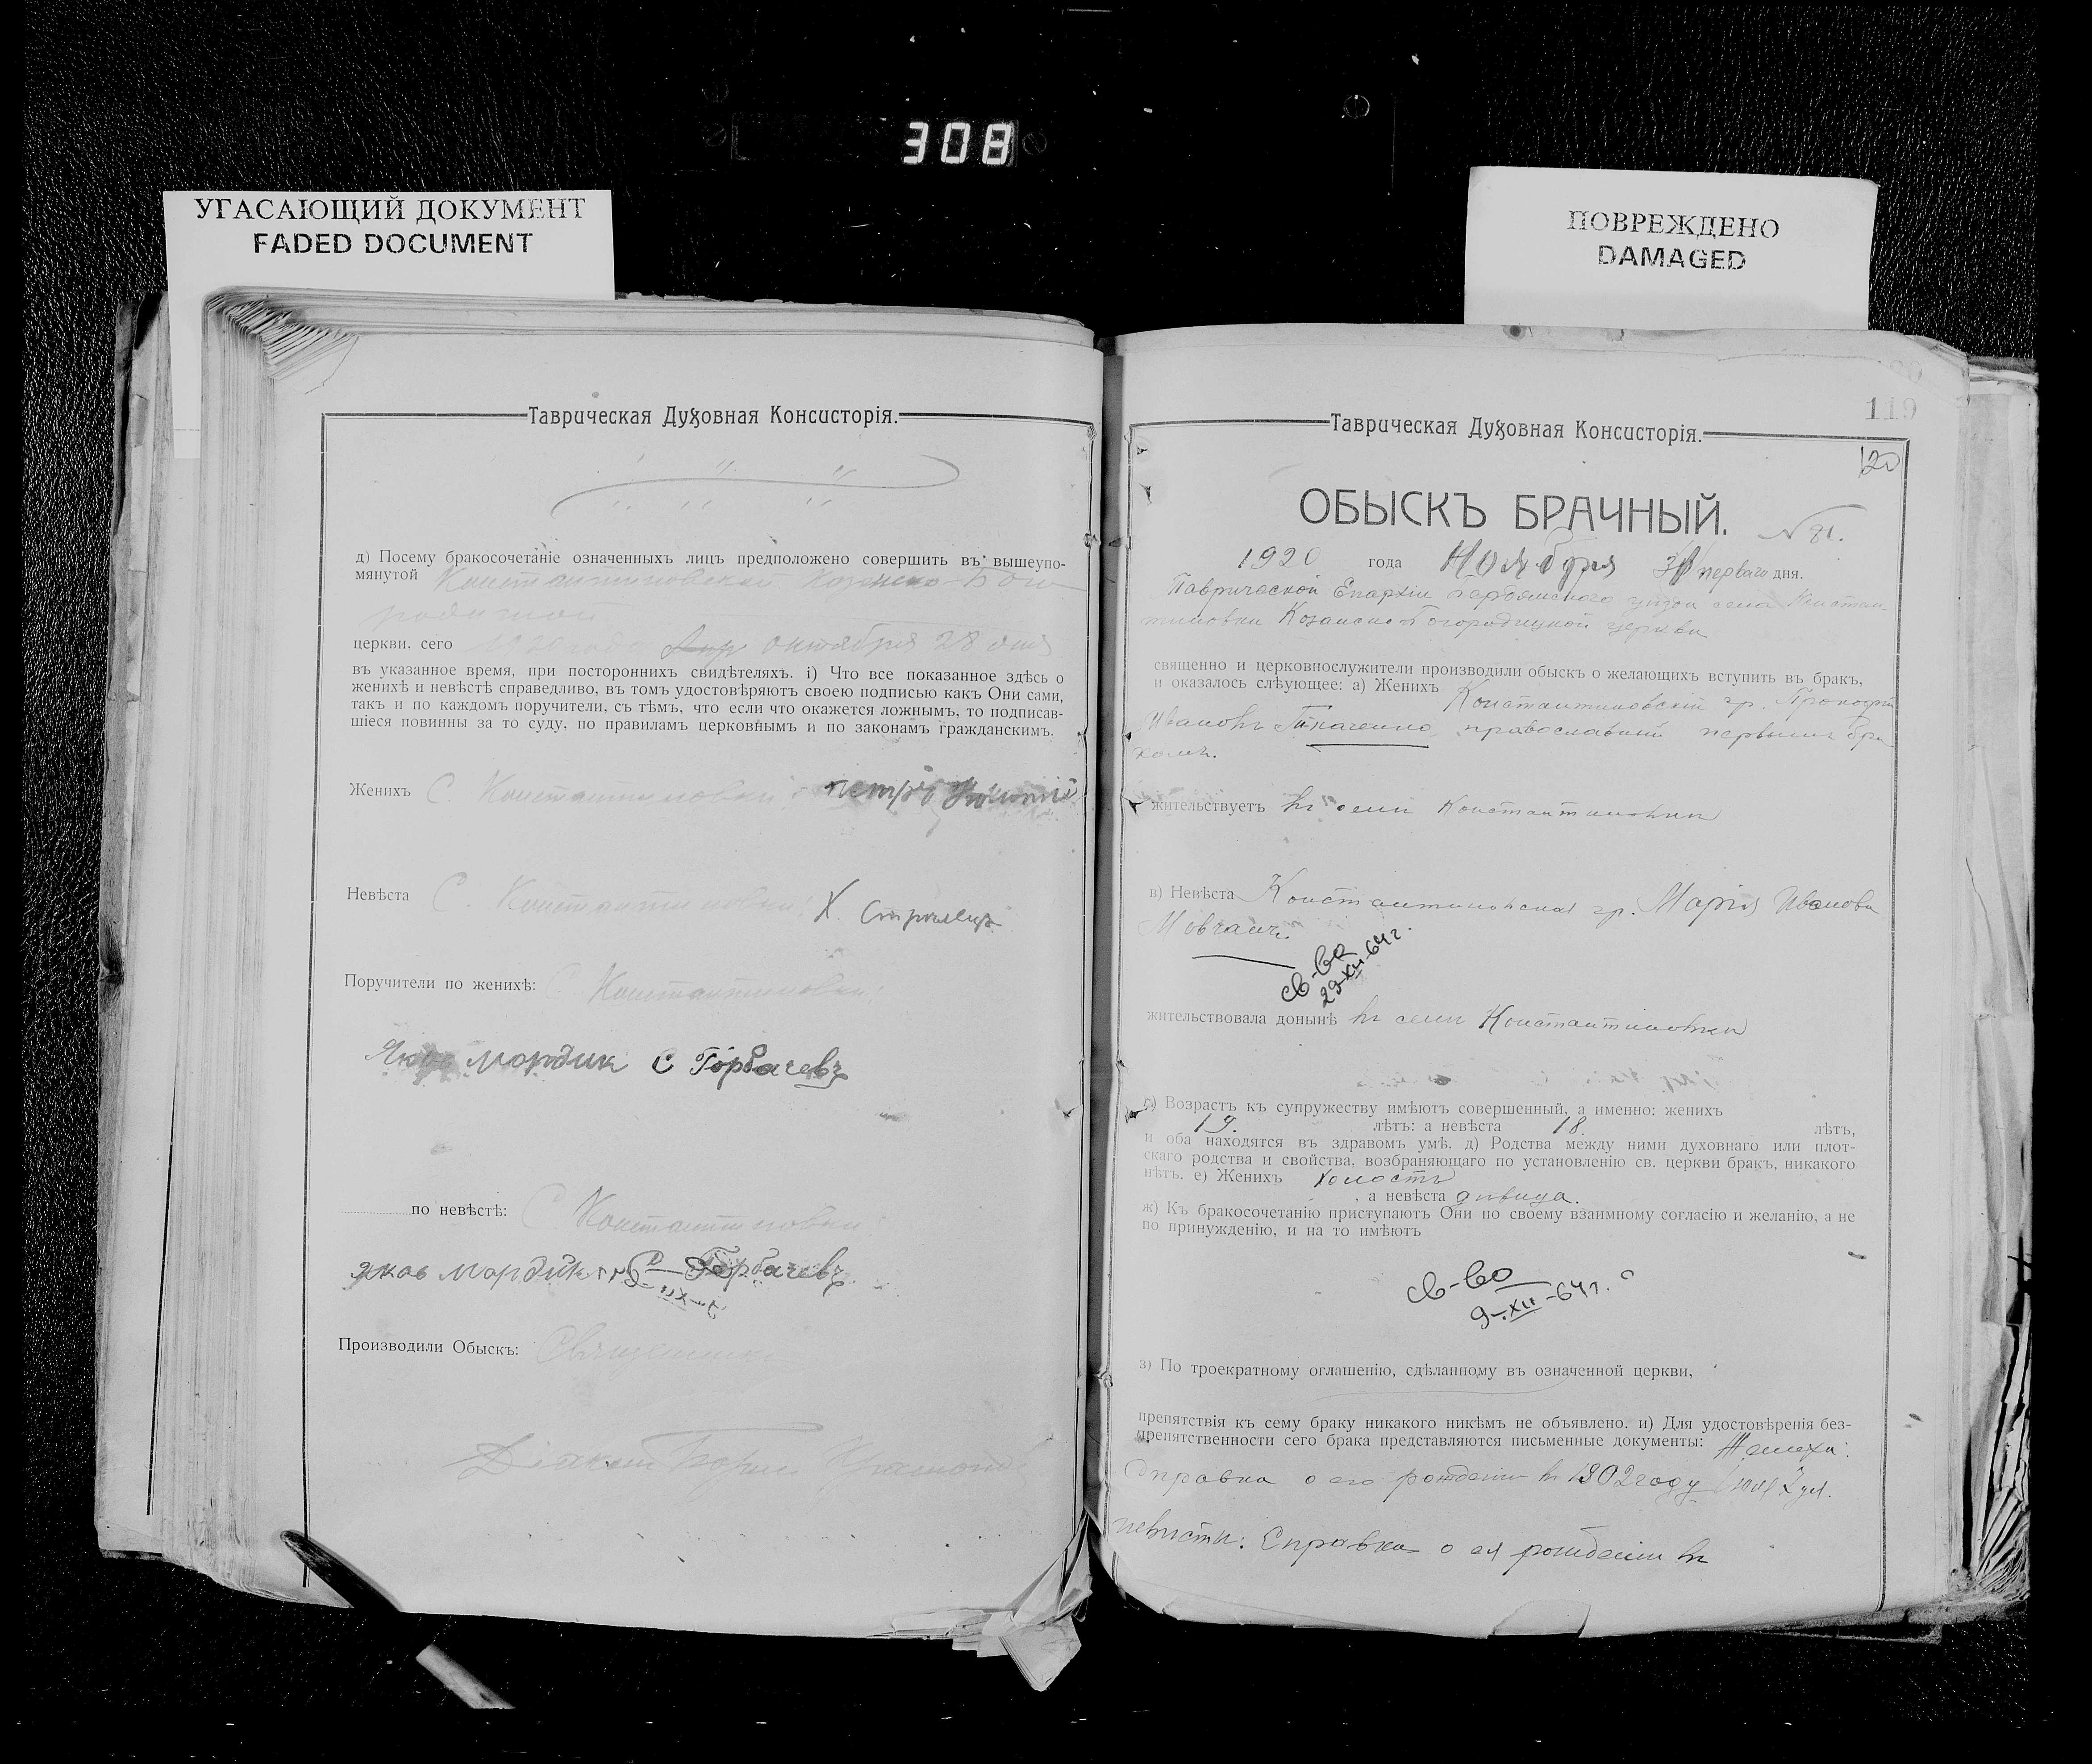 308
УГАСАЮЩИЙ ДОКУМЕНТ
FADED DOCUMENT
ПОВРЕЖДЕНО
DAMAGED
Таврическая Духовная Консисторія.
д) Посему бракосочетаніе означенныхъ лицъ предположено совершить въ вышеупо-
мянутой Константиновской Казанско-Бого
родичной
церкви, сего 1920 года октября 28 дня
въ указанное время, при постороннихъ свидѣтеляхъ. і) Что все показанное здѣсь о
женихѣ и невѣстѣ справедливо, въ томъ удостовѣряютъ своею подписью какъ Они сами,
такъ и по каждомъ поручители, съ тѣмъ, что если что окажется ложнымъ, то подписав-
шіеся повинны за то суду, по правиламъ церковнымъ и по законамъ гражданскимъ.
Женихъ С. Константиновки: петръ
Невѣста С. Константиновки: Х.
Поручители по женихѣ: С. Константиновки:
Яковъ мордик С Горбачевъ
по невѣстѣ: С Константиновки
яков мордик С Горбачевъ
Производили Обыскъ: Священникъ
Діаконъ
119
Таврическая Духовная Консисторія.
120
ОБЫСКЪ БРАЧНЫЙ.
№ 81.
1920 года Ноября перваго дня.
Таврической Епархіи Бердянскаго уѣзда села Констан
тиновки Козанско Богородицкой церкви
священно и церковнослужители производили обыскъ о желающихъ вступить въ бракъ,
и оказалось слѣующее: а) Женихъ Константиновскій гр. Прокофій
Ивановъ Ткаченко православный первымъ бра
комъ.
жительствуетъ въ селѣ Константиновки
в) Невѣста Константиновская гр. Марія Иванова
Мовчанъ
св-во
29-XII-64г.
жительствовала донынѣ въ селѣ Константиновки
г) Возрастъ къ супружеству имѣютъ совершенный, а именно: женихъ
19. лѣтъ: а невѣста 18. лѣтъ,
и оба находятся въ здравомъ умѣ. д) Родства между ними духовнаго или плот-
скаго родства и свойства, возбраняющаго по установленію св. церкви бракъ, никакого
нѣтъ. е) Женихъ холостъ
, а невѣста дѣвица.
ж) Къ бракосочетанію приступаютъ Они по своему взаимному согласію и желанію, а не
по принужденію, и на то имѣютъ
св-во
9-XII-64г.
з) По троекратному оглашенію, сдѣланному въ означенной церкви,
препятствія къ сему браку никакого никѣмъ не объявлено. и) Для удостовѣренія без-
препятственности сего брака представляются письменные документы: Жениха:
Справка о его рожденіи въ 1902 году
невѣсты: Справка о ея рожденіи въ